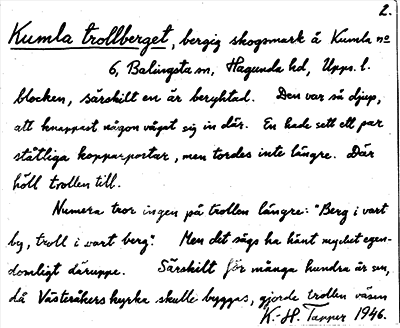 2.
Kumla trollberget, bergig skogsmark å Kumla no
6, Balingsta sn, Hagunda hd, Upps. l.
blocken, särskilt en är beryktad. Den var så djup,
att knappast någon vågat sig in där. En hade sett ett par
ståtliga kopparportar, men tordes inte längre. Där
höll trollen till.
Numera tror ingen på trollen längre: "Berg i vart
by, troll i vart berg." Men det sägs ha hänt mycket egen-
domligt däruppe. Särskilt för många hundra år sen,
då Västeråkers kyrka skulle byggas, gjorde trollen väsen
K.-H. Tapper 1946.